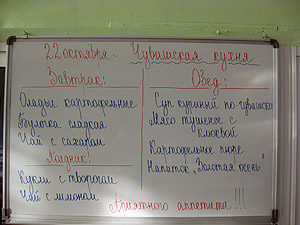 22 октября - Чувашская кухня
Завтрак:
Оладьи картофельные
Булочка сладкая
Чай с сахаром
Полдник:
Кукли с творогом
Чай с лимоном
Обед:
Суп куриный по-чувашски
Мясо тушеное с
клюквой
Картофельное пюре
Напиток „Золотая осень"
Приятного аппетита!!!